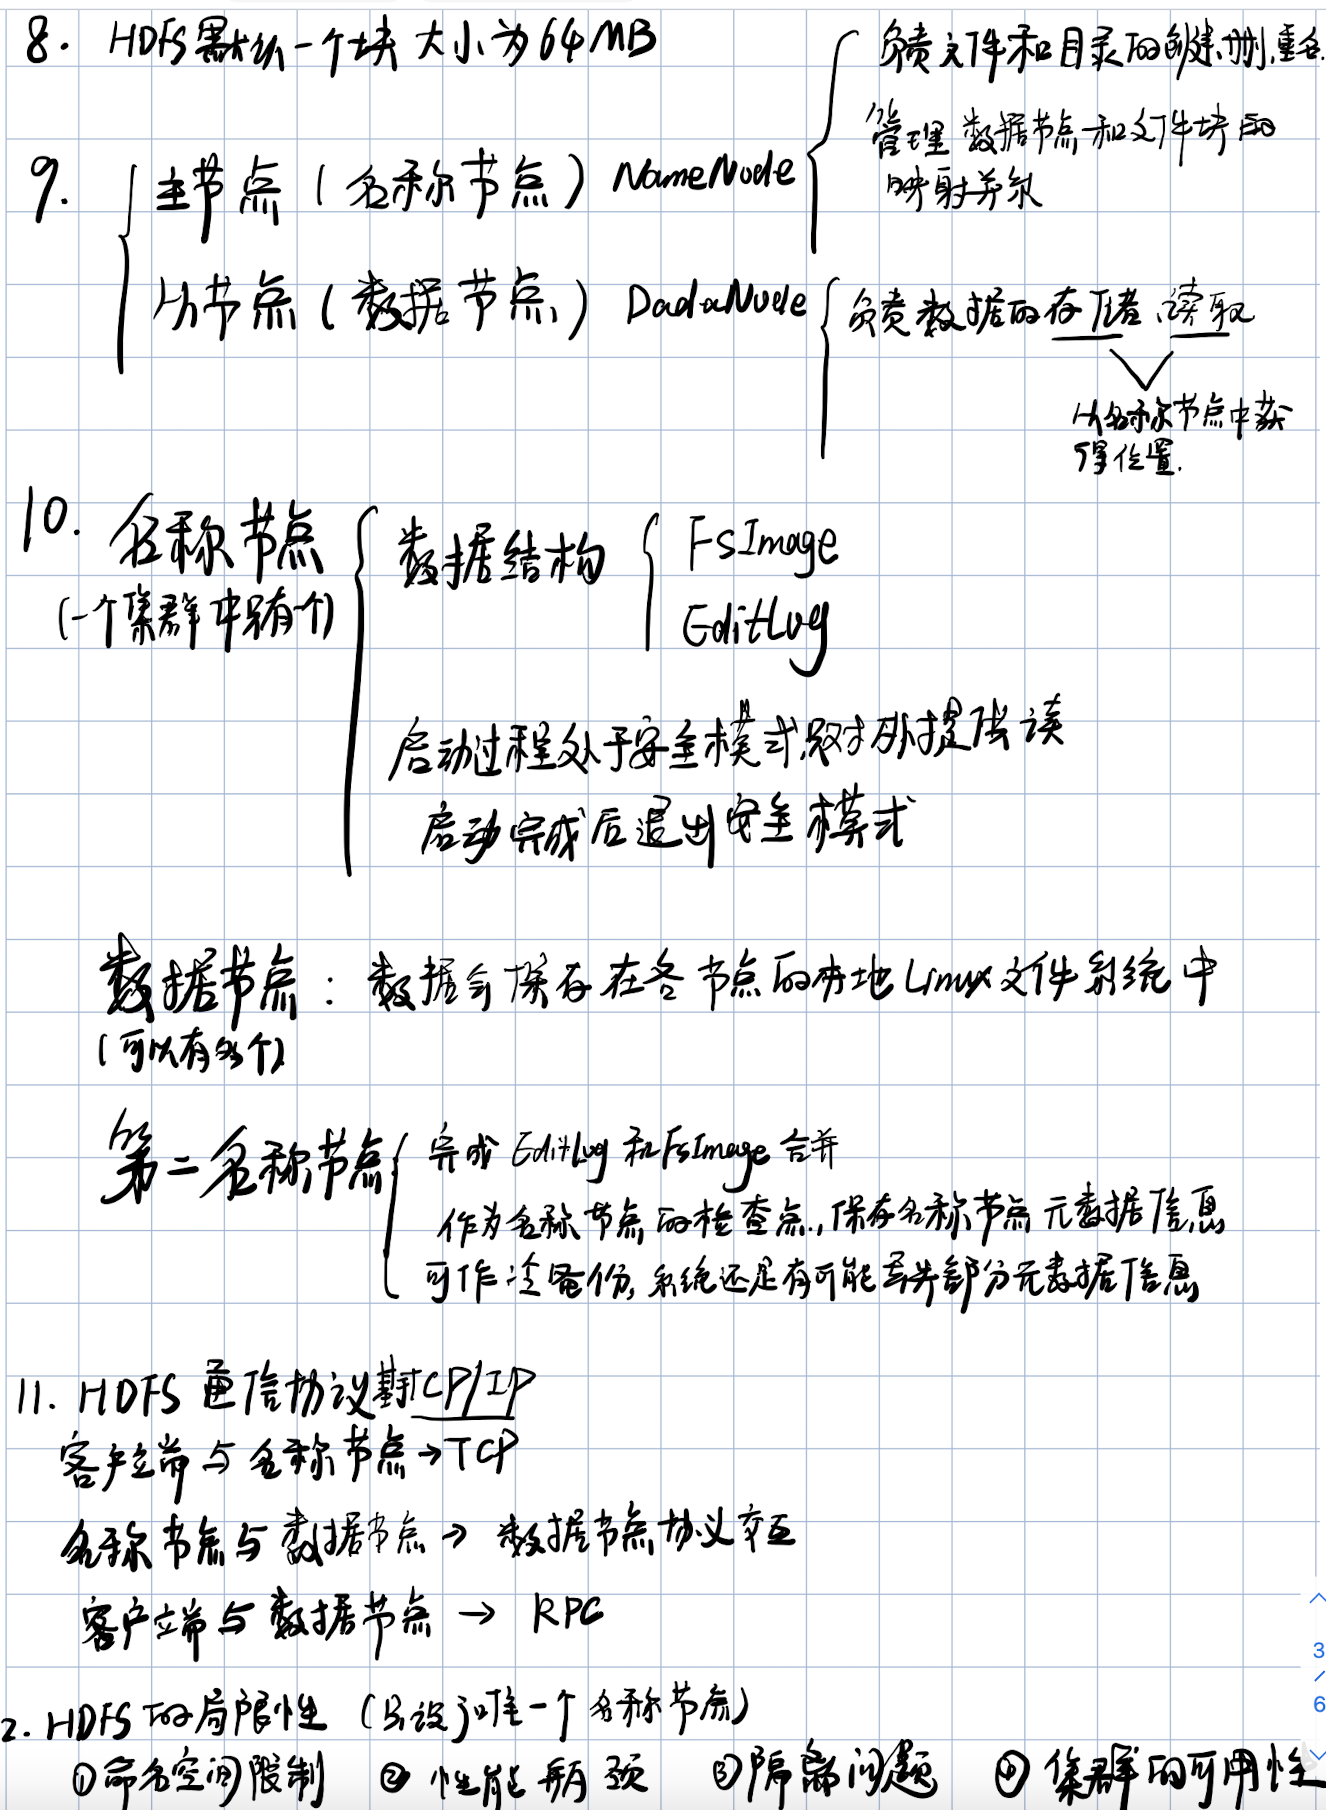 8. HDFS默认一个块大小为64MB
负责文件和目录的创建、删、重名.
管理数据节点和文件块的
映射关系
9.
主节点(名称节点) NameNode
从节点(数据节点) DadaNode
负责数据的存储、读取
从名称节点中获
得位置.
10. 名称节点
(一个集群中只有一个)
数据结构
FsImage
EditLog
启动过程处于安全模式,只对外提供读
启动完成后退出安全模式
数据节点: 数据会保存在各节点的本地Linux文件系统中
(可以有多个)
第二名称节点
完成EditLog和FsImage合并
作为名称节点的检查点,保存名称节点元数据信息
可作冷备份,系统还是有可能丢失部分元数据信息
11. HDFS通信协议基于TCP/IP
客户端与名称节点→TCP
名称节点与数据节点→数据节点协议交互
客户端与数据节点→RPC
2. HDFS的局限性(只设了唯一个名称节点)
①命名空间限制 ②性能瓶颈 ③隔离问题 ④集群的可用性
3
/
6